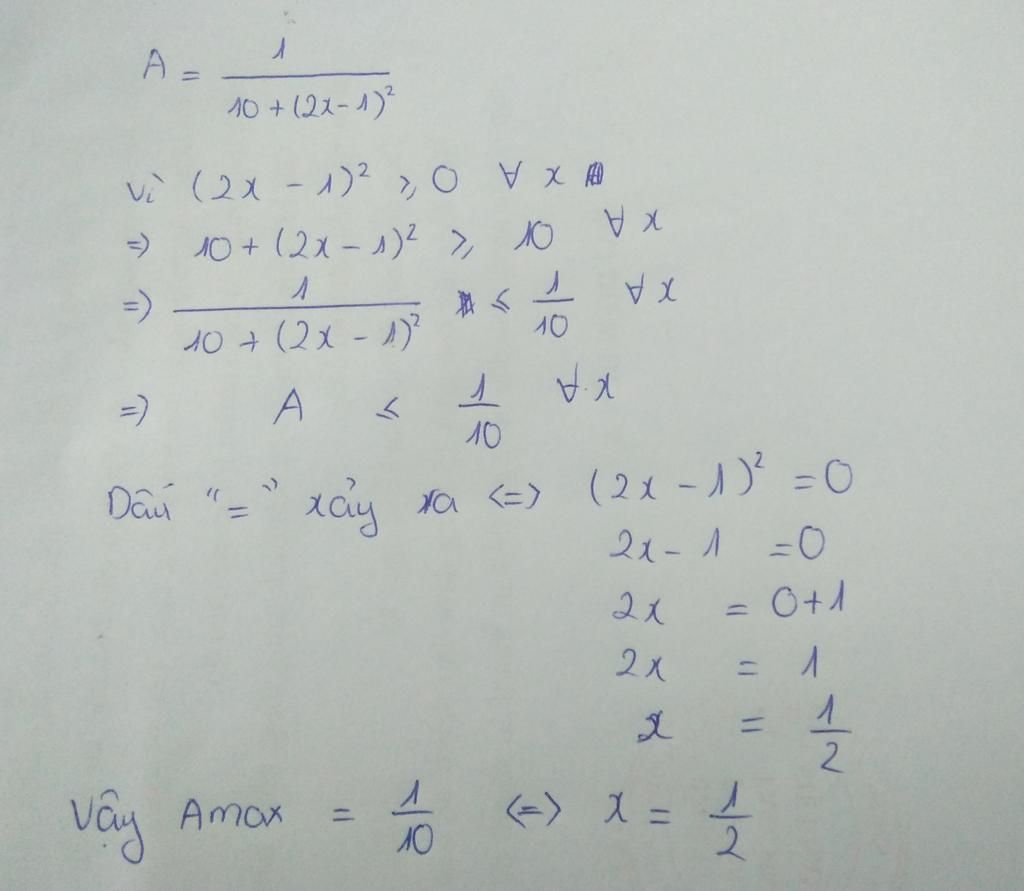 A = 1/(10 + (2x - 1)²)
Vì (2x - 1)² ⩾ 0 ∀ x
=> 10 + (2x - 1)² ⩾ 10 ∀ x
=> 1/(10 + (2x - 1)²) ⩽ 1/10 ∀ x
=> A ⩽ 1/10 ∀ x
Dấu "=" xảy ra <=> (2x - 1)² = 0
2x - 1 = 0
2x = 0 + 1
2x = 1
x = 1/2
Vậy Amax = 1/10 <=> x = 1/2